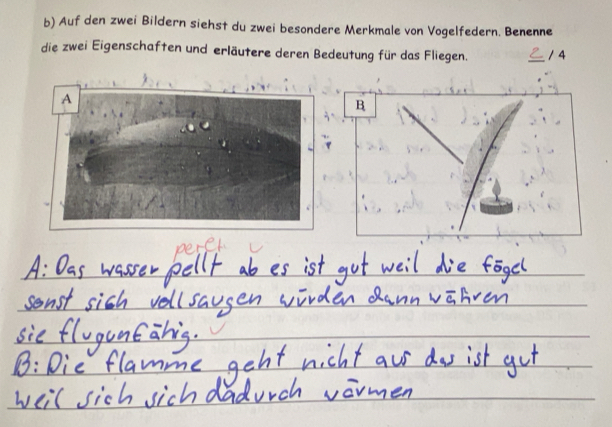 b) Auf den zwei Bildern siehst du zwei besondere Merkmale von Vogelfedern. Benenne
die zwei Eigenschaften und erläutere deren Bedeutung für das Fliegen.
2 / 4
A
B
perlt
A: Das wasser pellt ab es ist gut weil die fögel
sonst sich vollsaugen würden dann währen
sie flugunfähig.
B: Die flamme geht nicht aus das ist gut
weil sich sich dadurch värmen